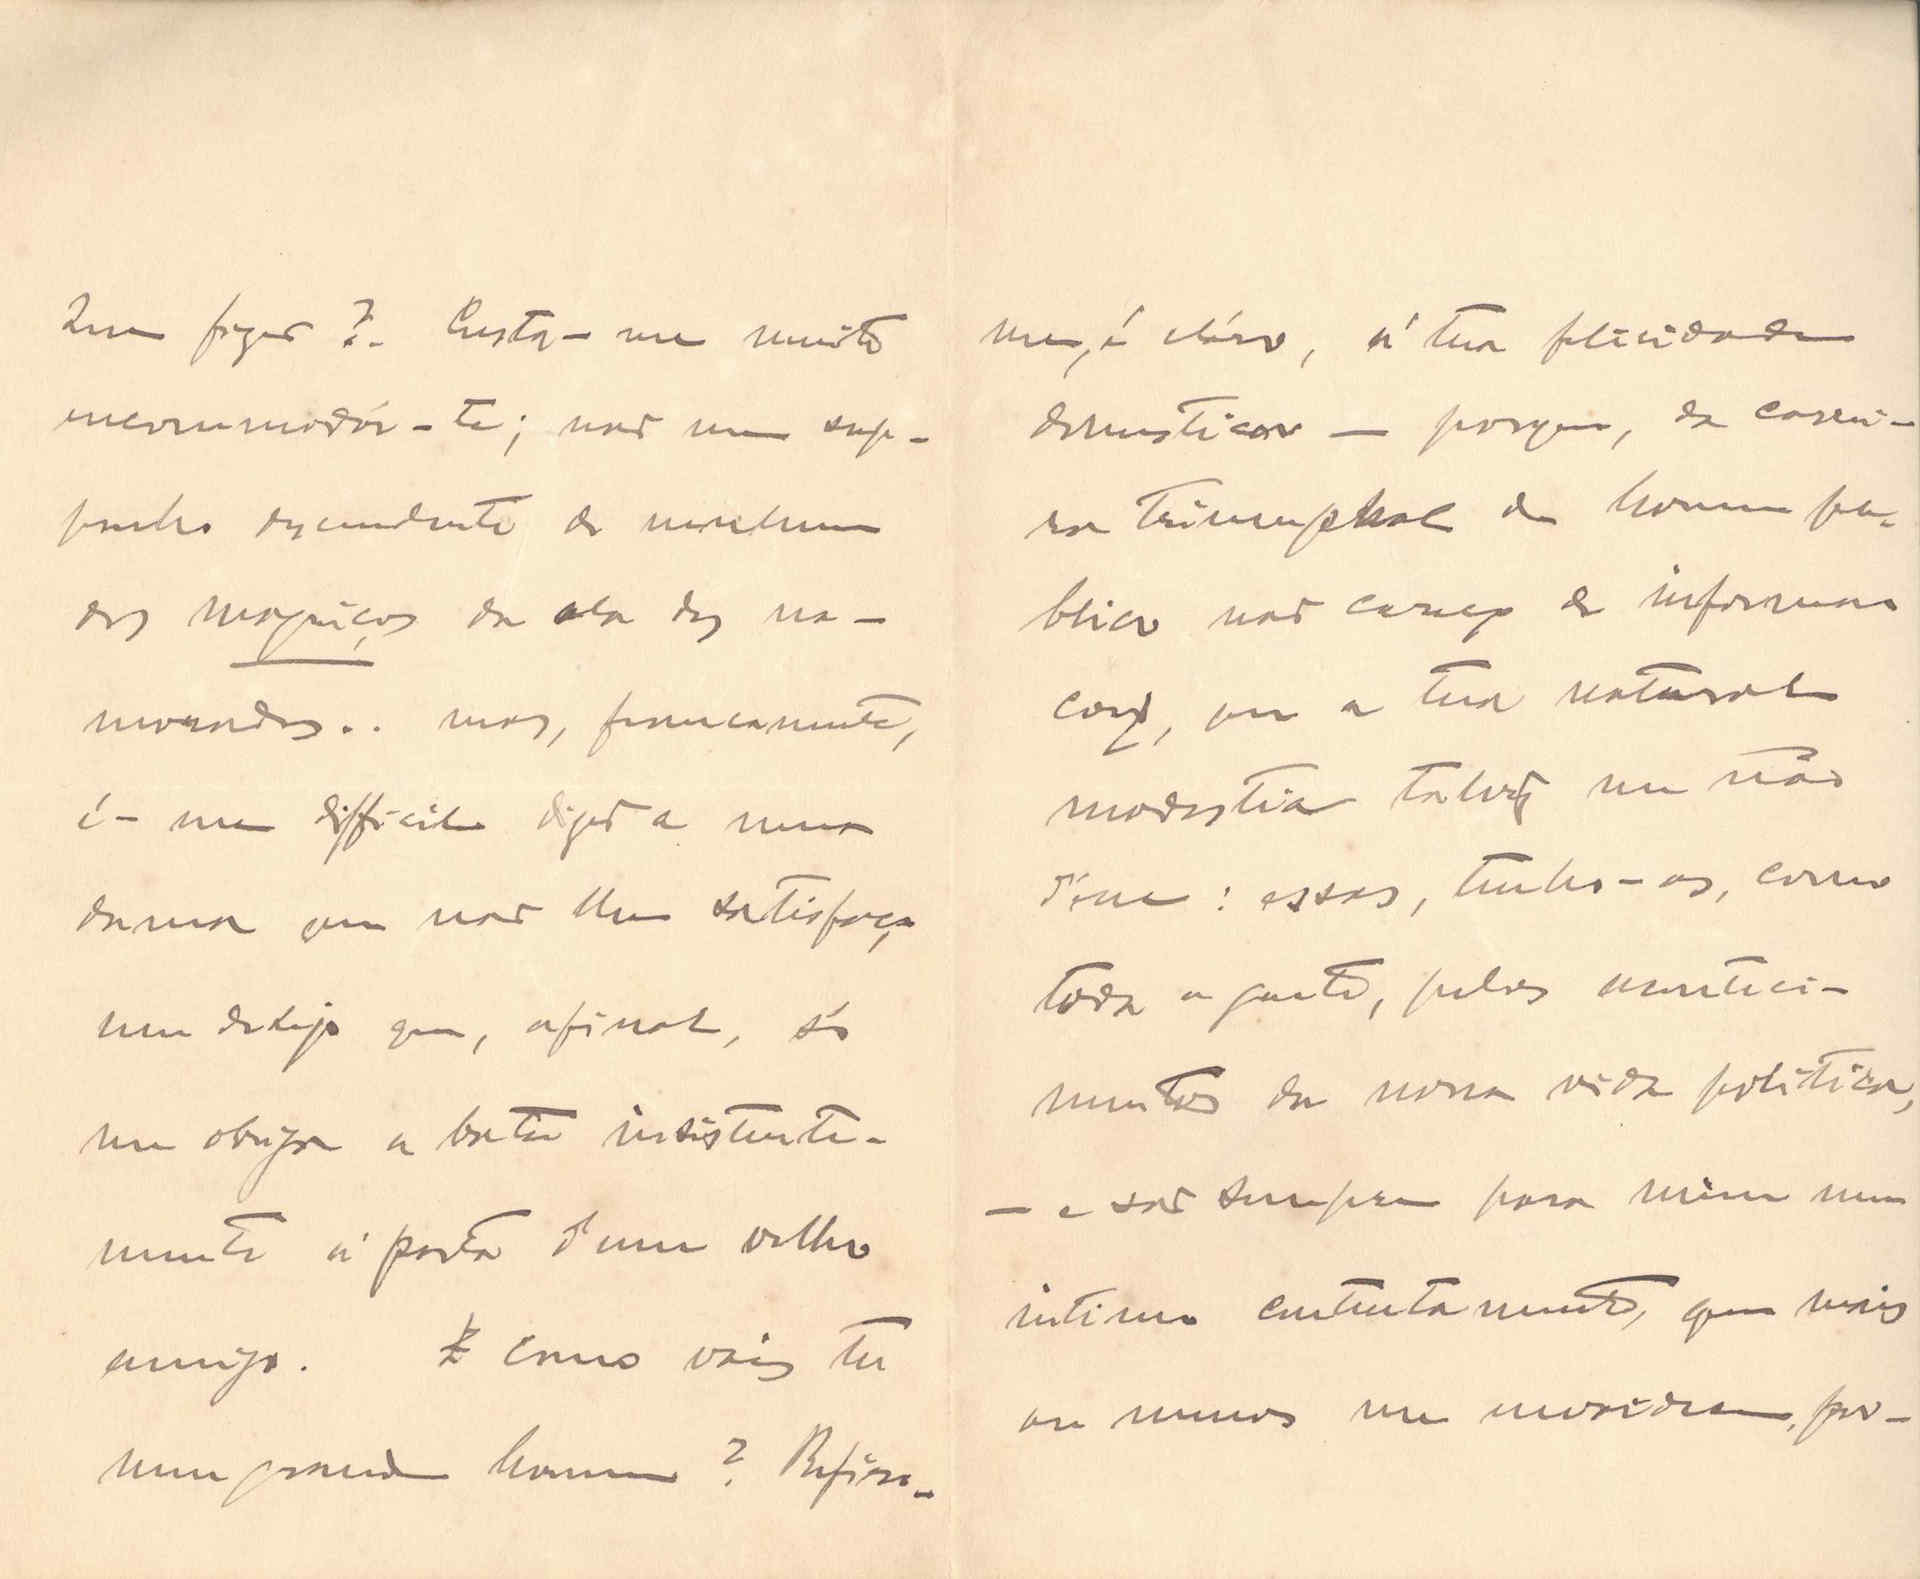 Que fazer? Custa-me muito
encommodár-te; não me sup-
ponho descendente de nenhum
dos magriços da ala dos na-
morados.. mas, francamente,
é-me difficil dizer a uma
dama que não lhe satisfaço
um desejo que, afinal, só
me obriga a bater insistente-
mente á porta d'um velho
amigo. E como vais tu
meu grande homem? Refiro-
me, é cláro, á tua felicidade
domestica — porque, da carrei-
ra triumphal do homem pu-
blico não careço de informa-
ções, que a tua natural
modestia talvez me não
désse: essas, tenho-as, como
toda a gente, pelos aconteci-
mentos da nossa vida politica,
— e são sempre para mim um
intimo contentamento, que mais
ou menos me envaidece, por-